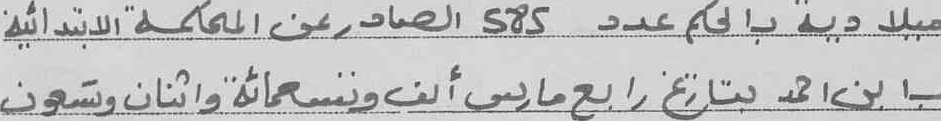 ميلادية بالحكم عدد 585 الصادر عن المحكمة الابتدائية
بابن احمد بتاريخ رابع مارس ألف وتسعمائة واثنان وتسعون